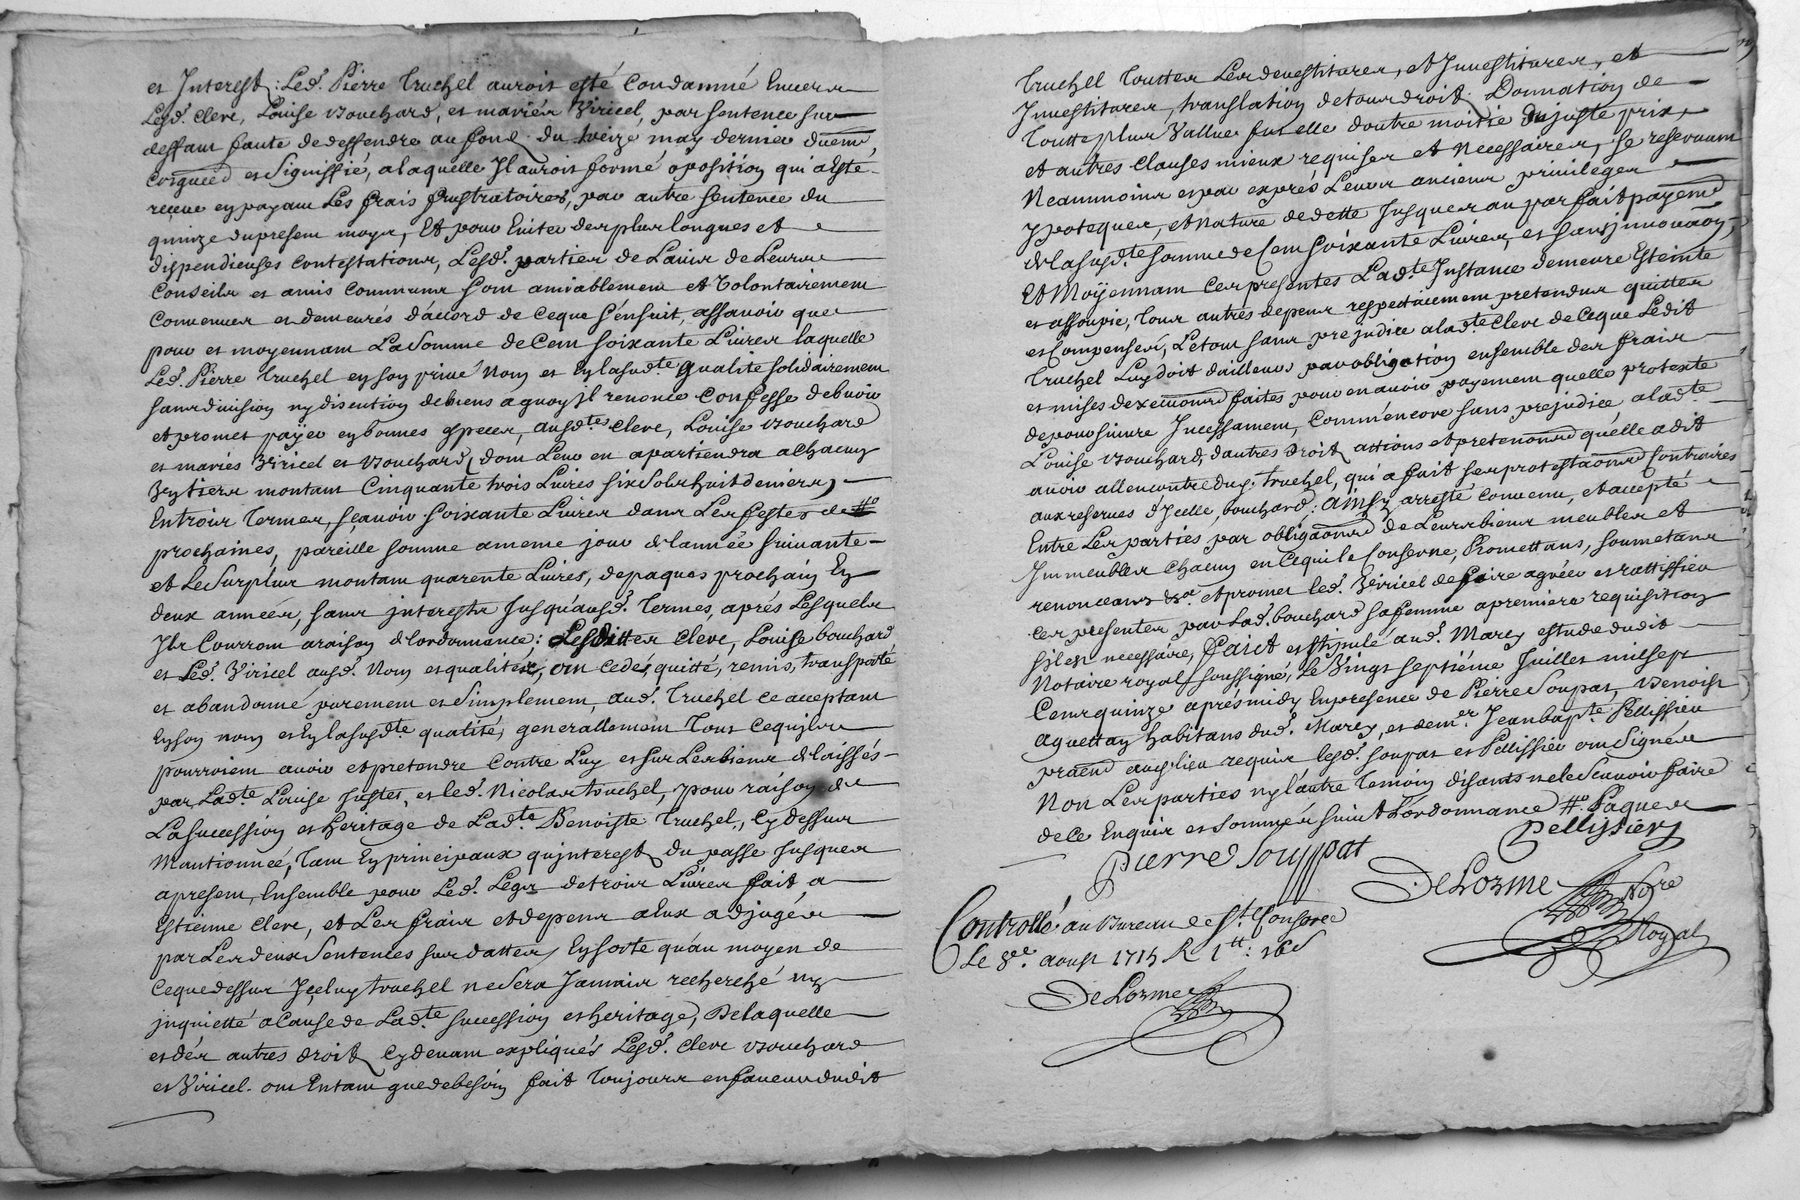 et Interest : Led. Pierre Truchel auroit esté Condamné Envers
Lesd. Cleve, Louise Bouchard, et mariés Viricel, par sentence sur
deffaut faute de deffendre au fond du treize may dernier duem,
et Signiffié, a laquelle Il auroit formé oposition qui a Esté
receue en payant Les frais frustratoires, par autre sentence du
quinze du present moys, Et pour Eviter des plus longues et
dispendieuses contestations, Lesd. parties de L'avis de Leurs
Conseils et amis Communs sont amiablement et Volontairement
Convenues et demeurés d'accord de ce que s'ensuit, assavoir que
pour et moyennant La Somme de Cent soixante Livres laquelle
Led. Pierre Truchel en son privé Nom et En la susd.te qualité solidairement
sans division ny discution de biens a quoy Il renonce Confesse debvoir
et promet payer en bonnes especes, ausd.tes Cleve, Louise Bouchard
et mariés Viricel et Bouchard, dont Leur en apartiendra a Chacun
Un tiers montant Cinquante trois Livres six Sols huit deniers,
En trois Termes, scavoir soixante Livres dans Les festes de #
prochaines, pareille somme a meme jour de l'année suivante
et Le Surplus montant quarente Livres, de paques prochain En
deux années, sans interests Jusqu'ausd. Termes, aprés Lesquels
Ils Courront a raison de l'ordonnance : Lesdittes Cleve, Louise bouchard
et Led. Viricel ausd. Nom et qualités, ont cedé, quitté, remis, transporté
et abandonné purement et Simplement, aud. Truchel ce acceptant
En son nom et En la susd.te qualité, generallement Tout ce qu'ils
pourroient avoir et pretendre Contre Luy et sur Les biens delaissés
par Lad.te Louise Justet, et led. Nicolas truchel, pour raison de
La Succession et heritage de Lad.te Benoiste Truchel, Cy dessus
Mantionnée, Tant En principaux qu'interest du passe Jusques
a present, Ensemble pour Led. Legs de trois Livres fait a
Estienne Cleve, et Les frais et depens a Eux adjugés
par Les deux Sentences sus dattes, En sorte qu'au moyen de
ce que dessus Iceluy truchel ne Sera Jamais recherché ny
inquietté a Cause de Lad.te succession et heritage, De laquelle
et des autres droit Cy devant expliqués Lesd. Cleve Bouchard
et Viricel ont En tant que de besoin fait Toujours en faveur dudit
Truchel Touttes Les devestitures, et Investitures, et
Investitures, translation de tous droit, Donnation de
Toutte plus Vallue fut elle d'outre moitié du juste prix,
et autres Clauses mieux requises et Necessaires, se reservant
Neanmoins et par exprés Leurs anciens privileges
ypoteques, et Nature de dette Jusques au parfait payem.t
de la susd.te somme de Cent soixante Livres, et sans innovaon,
Et Moÿennant Ces presentes Lad.te Instance demeure Esteinte
et assoupie, tous autres depens respectivement pretendus quittes
et Compensés, Le tout sans prejudice a lad.te Cleve de Ce que Ledit
Truchel Luy doit d'ailleurs par obligation ensemble des frais
et mises d'exeCuons faites pour en avoir payement quelle proteste
de poursuivre Incessament, Comm'encore sans prejudice a lad.te
Louise Bouchard, d'autres Droit, attions et pretenons qu'elle a dit
avoir allencontre du y. truchel, qui a fait ses protestaons Contraires
aux reserves d'Icelle, bouchard : Ainsy arresté Convenu, et accepté
Entre Les parties par obligaons de Leurs biens meubles et
Immeubles Chacun en Ce qui le Conserne, Promettans, soumetans
renonceans &a. et promet led. Viricel de faire agréer et rattiffier
Ces presentes par Lad. bouchard sa femme a premiere requisition
s'il est necessaire, Faict et stipulé aud. Marcy estude dudit
Notaire royal soussigné, Le Vingt septiéme Juillet mil sept
Cent quinze aprés midy En presence de Pierre Soupat, Benoist
Aquettan habitans dud. Marcy, et de m.er Jean bap.te Pellissier
praen aud. lieu requis lesd. soupat et Pellissier ont Signé
Non Les parties ny l'autre Temoin disants ne le Scavoir faire
de ce Enquis et Sommés suivt L'ordonnance # Paques
Pierre Souppat
Pellissier
DeLorme
N.re
Royal
Controllé au Bureau de St. Consorce
Le 8.e aoust 1715 R 1 tt: 16 s
DeLorme